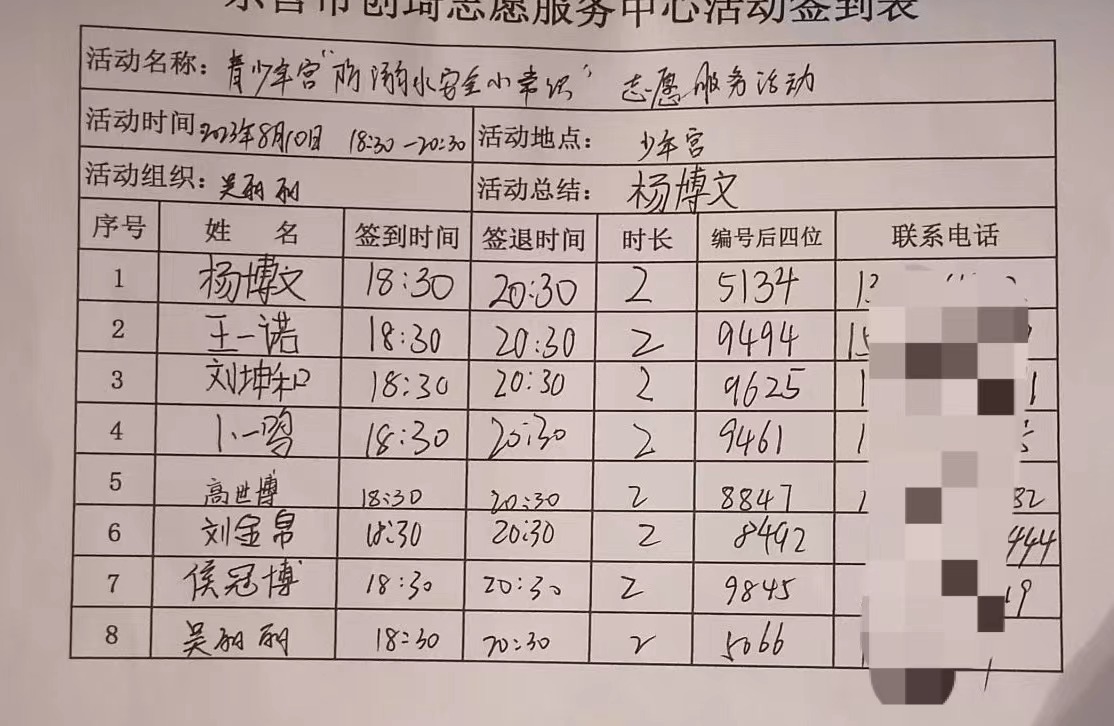 东营市创琦志愿服务中心活动签到表
活动名称：青少年宫“防溺水安全小常识”志愿服务活动
活动时间 2023年8月10日 18:30-20:30 活动地点： 少年宫
活动组织：吴丽丽 活动总结： 杨博文
序号 姓 名 签到时间 签退时间 时长 编号后四位 联系电话
1 杨博文 18:30 20:30 2 5134 13
2 王一诺 18:30 20:30 2 9494 15
3 刘坤和 18:30 20:30 2 9625 1 1
4 卜一鸣 18:30 20:30 2 9461 1
5 高世博 18:30 20:30 2 8847 1 32
6 刘金帛 18:30 20:30 2 8492 444
7 侯冠博 18:30 20:30 2 9845 19
8 吴丽丽 18:30 20:30 2 5066 1